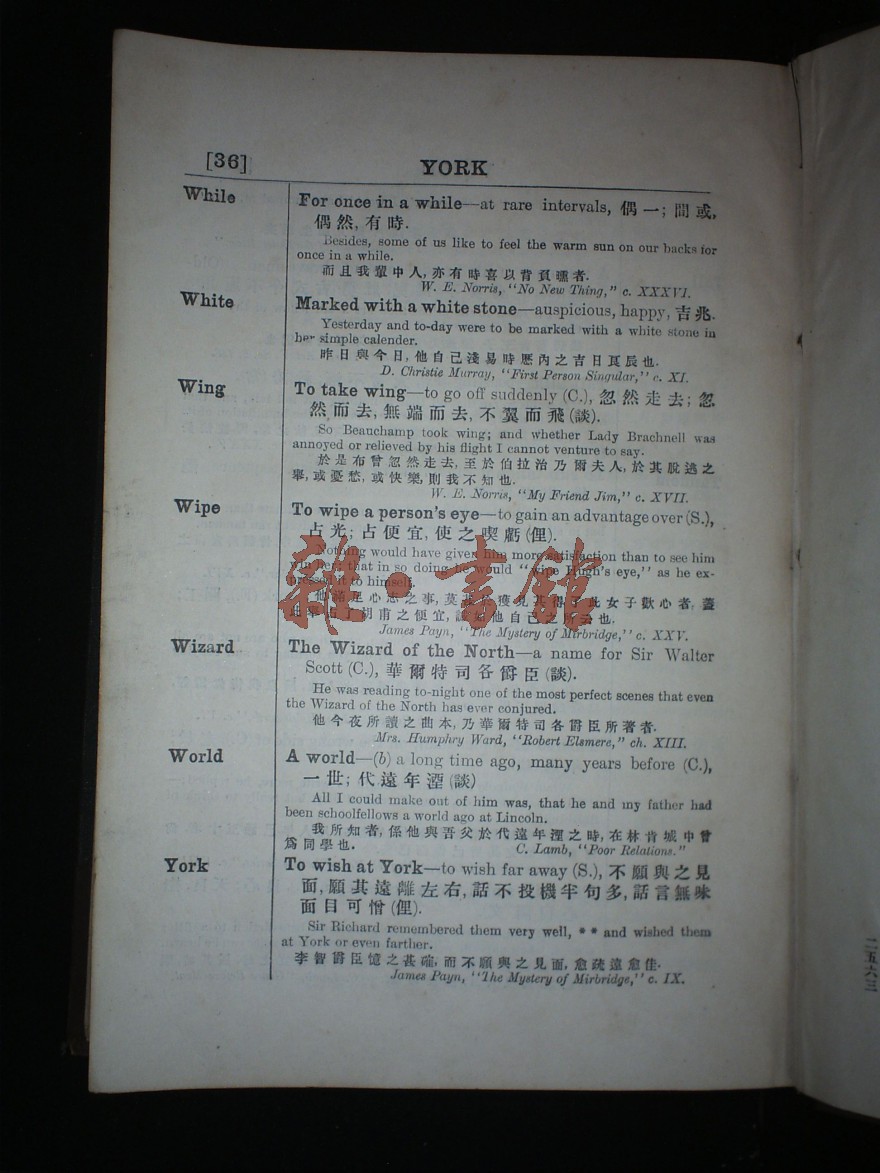 [36]
YORK
While
For once in a while—at rare intervals, 偶一; 間或,
偶然, 有時.
Besides, some of us like to feel the warm sun on our backs for
once in a while.
而且我輩中人, 亦有時喜以背負曝者.
W. E. Norris, "No New Thing," c. XXXVI.
White
Marked with a white stone—auspicious, happy, 吉兆.
Yesterday and to-day were to be marked with a white stone in
her simple calender.
昨日與今日, 他自己淺易時曆內之吉日良辰也.
D. Christie Murray, "First Person Singular," c. XI.
Wing
To take wing—to go off suddenly (C.), 忽然走去; 忽
然而去, 無端而去, 不翼而飛 (談).
So Beauchamp took wing; and whether Lady Brachnell was
annoyed or relieved by his flight I cannot venture to say.
於是布曾忽然走去, 至於伯拉治乃爾夫人, 於其脫逃之
舉, 或憂愁, 或快樂, 則我不知也.
W. E. Norris, "My Friend Jim," c. XVII.
Wipe
To wipe a person's eye—to gain an advantage over (S.),
占光; 占便宜, 使之喫虧 (俚).
Nothing would have given him more satisfaction than to see him
win her; that in so doing he would "wipe Hugh's eye," as he ex-
pressed it to himself.
他 足心志之事, 莫 獲見其 此女子歡心者, 蓋
胡甫之便宜, 他自己之所 也.
James Payn, "The Mystery of Mirbridge," c. XXV.
Wizard
The Wizard of the North—a name for Sir Walter
Scott (C.), 華爾特司各爵臣 (談).
He was reading to-night one of the most perfect scenes that even
the Wizard of the North has ever conjured.
他今夜所讀之曲本, 乃華爾特司各爵臣所著者.
Mrs. Humphry Ward, "Robert Elsmere," ch. XIII.
World
A world—(b) a long time ago, many years before (C.),
一世; 代遠年湮 (談)
All I could make out of him was, that he and my father had
been schoolfellows a world ago at Lincoln.
我所知者, 係他與吾父於代遠年湮之時, 在林肯城中曾
爲同學也.
C. Lamb, "Poor Relations."
York
To wish at York—to wish far away (S.), 不願與之見
面, 願其遠離左右, 話不投機半句多, 話言無味
面目可憎 (俚).
Sir Richard remembered them very well, * * and wished them
at York or even farther.
李智爵臣憶之甚確, 而不願與之見面, 愈疏遠愈佳.
James Payn, "The Mystery of Mirbridge," c. IX.
二五六三
雜·書館